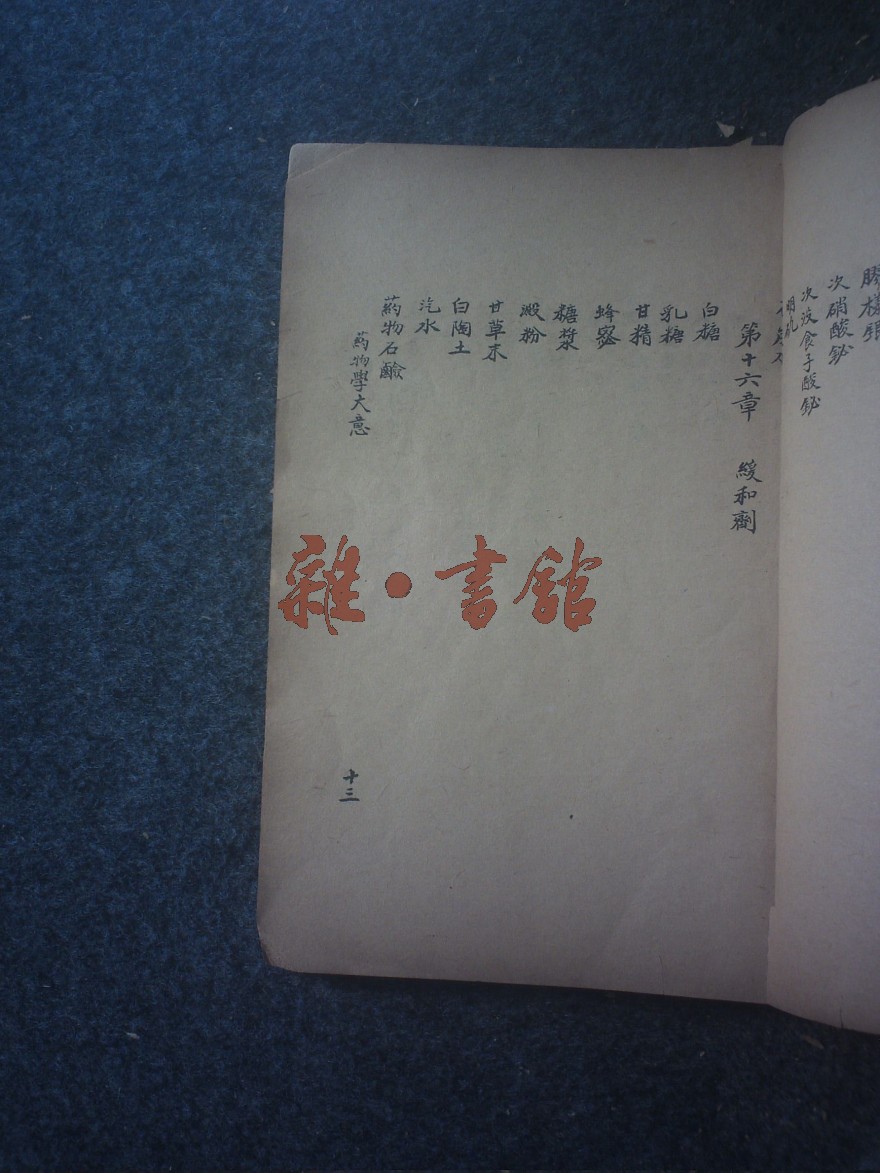 次硝酸鉍
次没食子酸鉍
第十六章 緩和劑
白糖
乳糖
甘精
蜂蜜
糖漿
澱粉
甘草末
白陶土
汽水
葯物石鹼
葯物學大意
十三
雜•書館